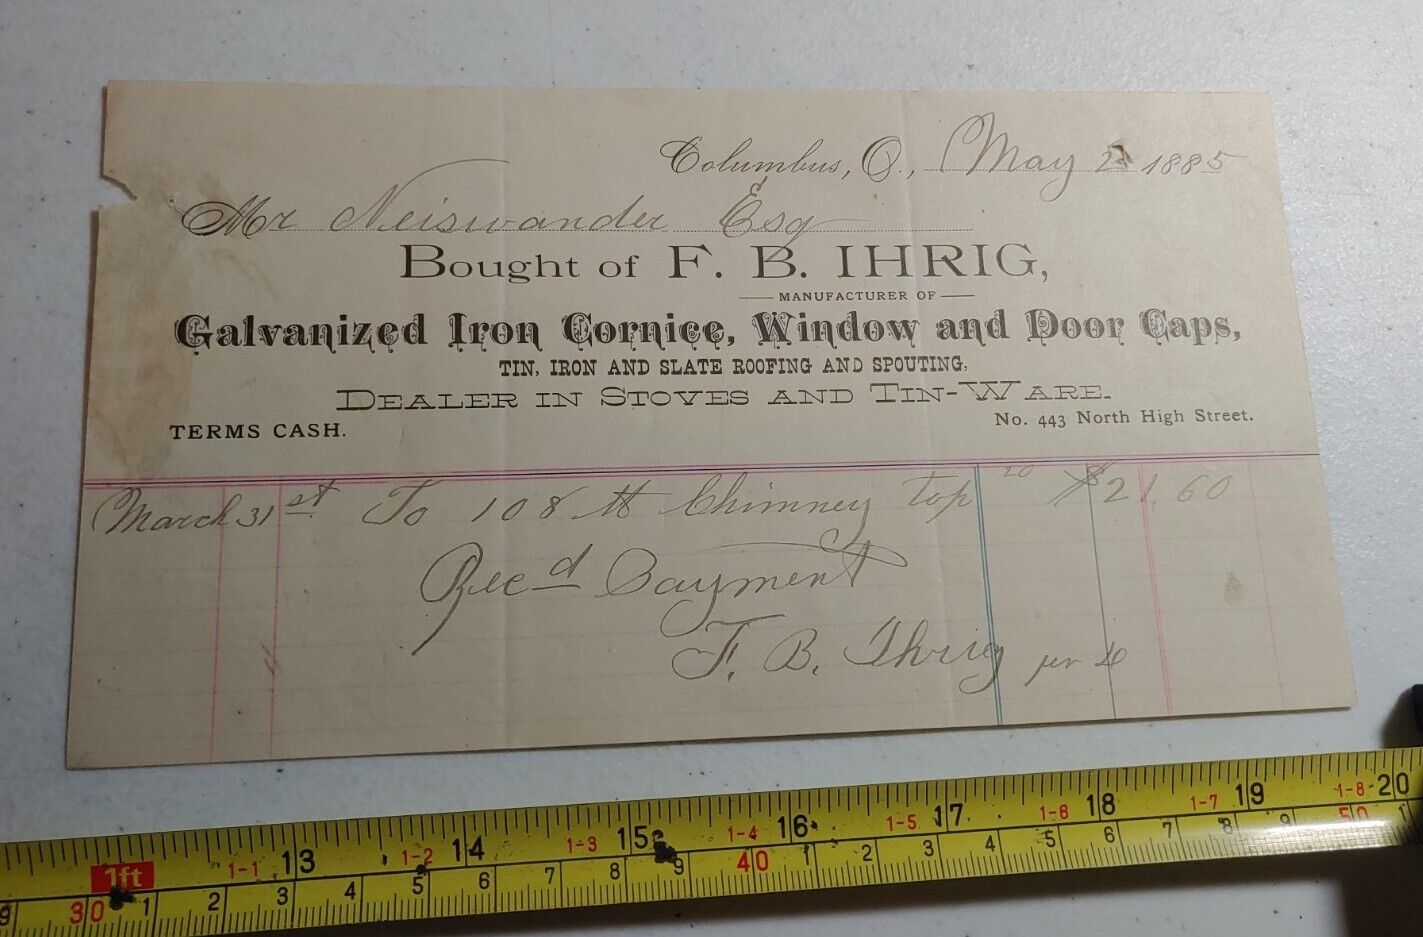 Columbus, O., May 2 1885
Mr Neiswander Esq
Bought of F. B. IHRIG,
MANUFACTURER OF
Galvanized Iron Cornice, Window and Door Caps,
TIN, IRON AND SLATE ROOFING AND SPOUTING,
DEALER IN STOVES AND TIN-WARE.
TERMS CASH.
No. 443 North High Street.
March 31st To 108 ft Chimney top 20 $21.60
Recd Payment
F. B. Ihrig per
1ft 1-1 13 1-2 14 1-3 15 1-4 16 1-5 17 1-6 18 1-7 19 1-8 20
9 30 1 2 3 4 5 6 7 8 9 40 1 2 3 4 5 6 7 8 9 50 1